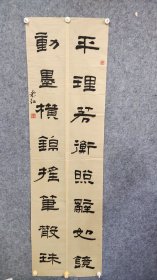 平理若衡照辭如鏡
動墨橫錦搖筆散珠